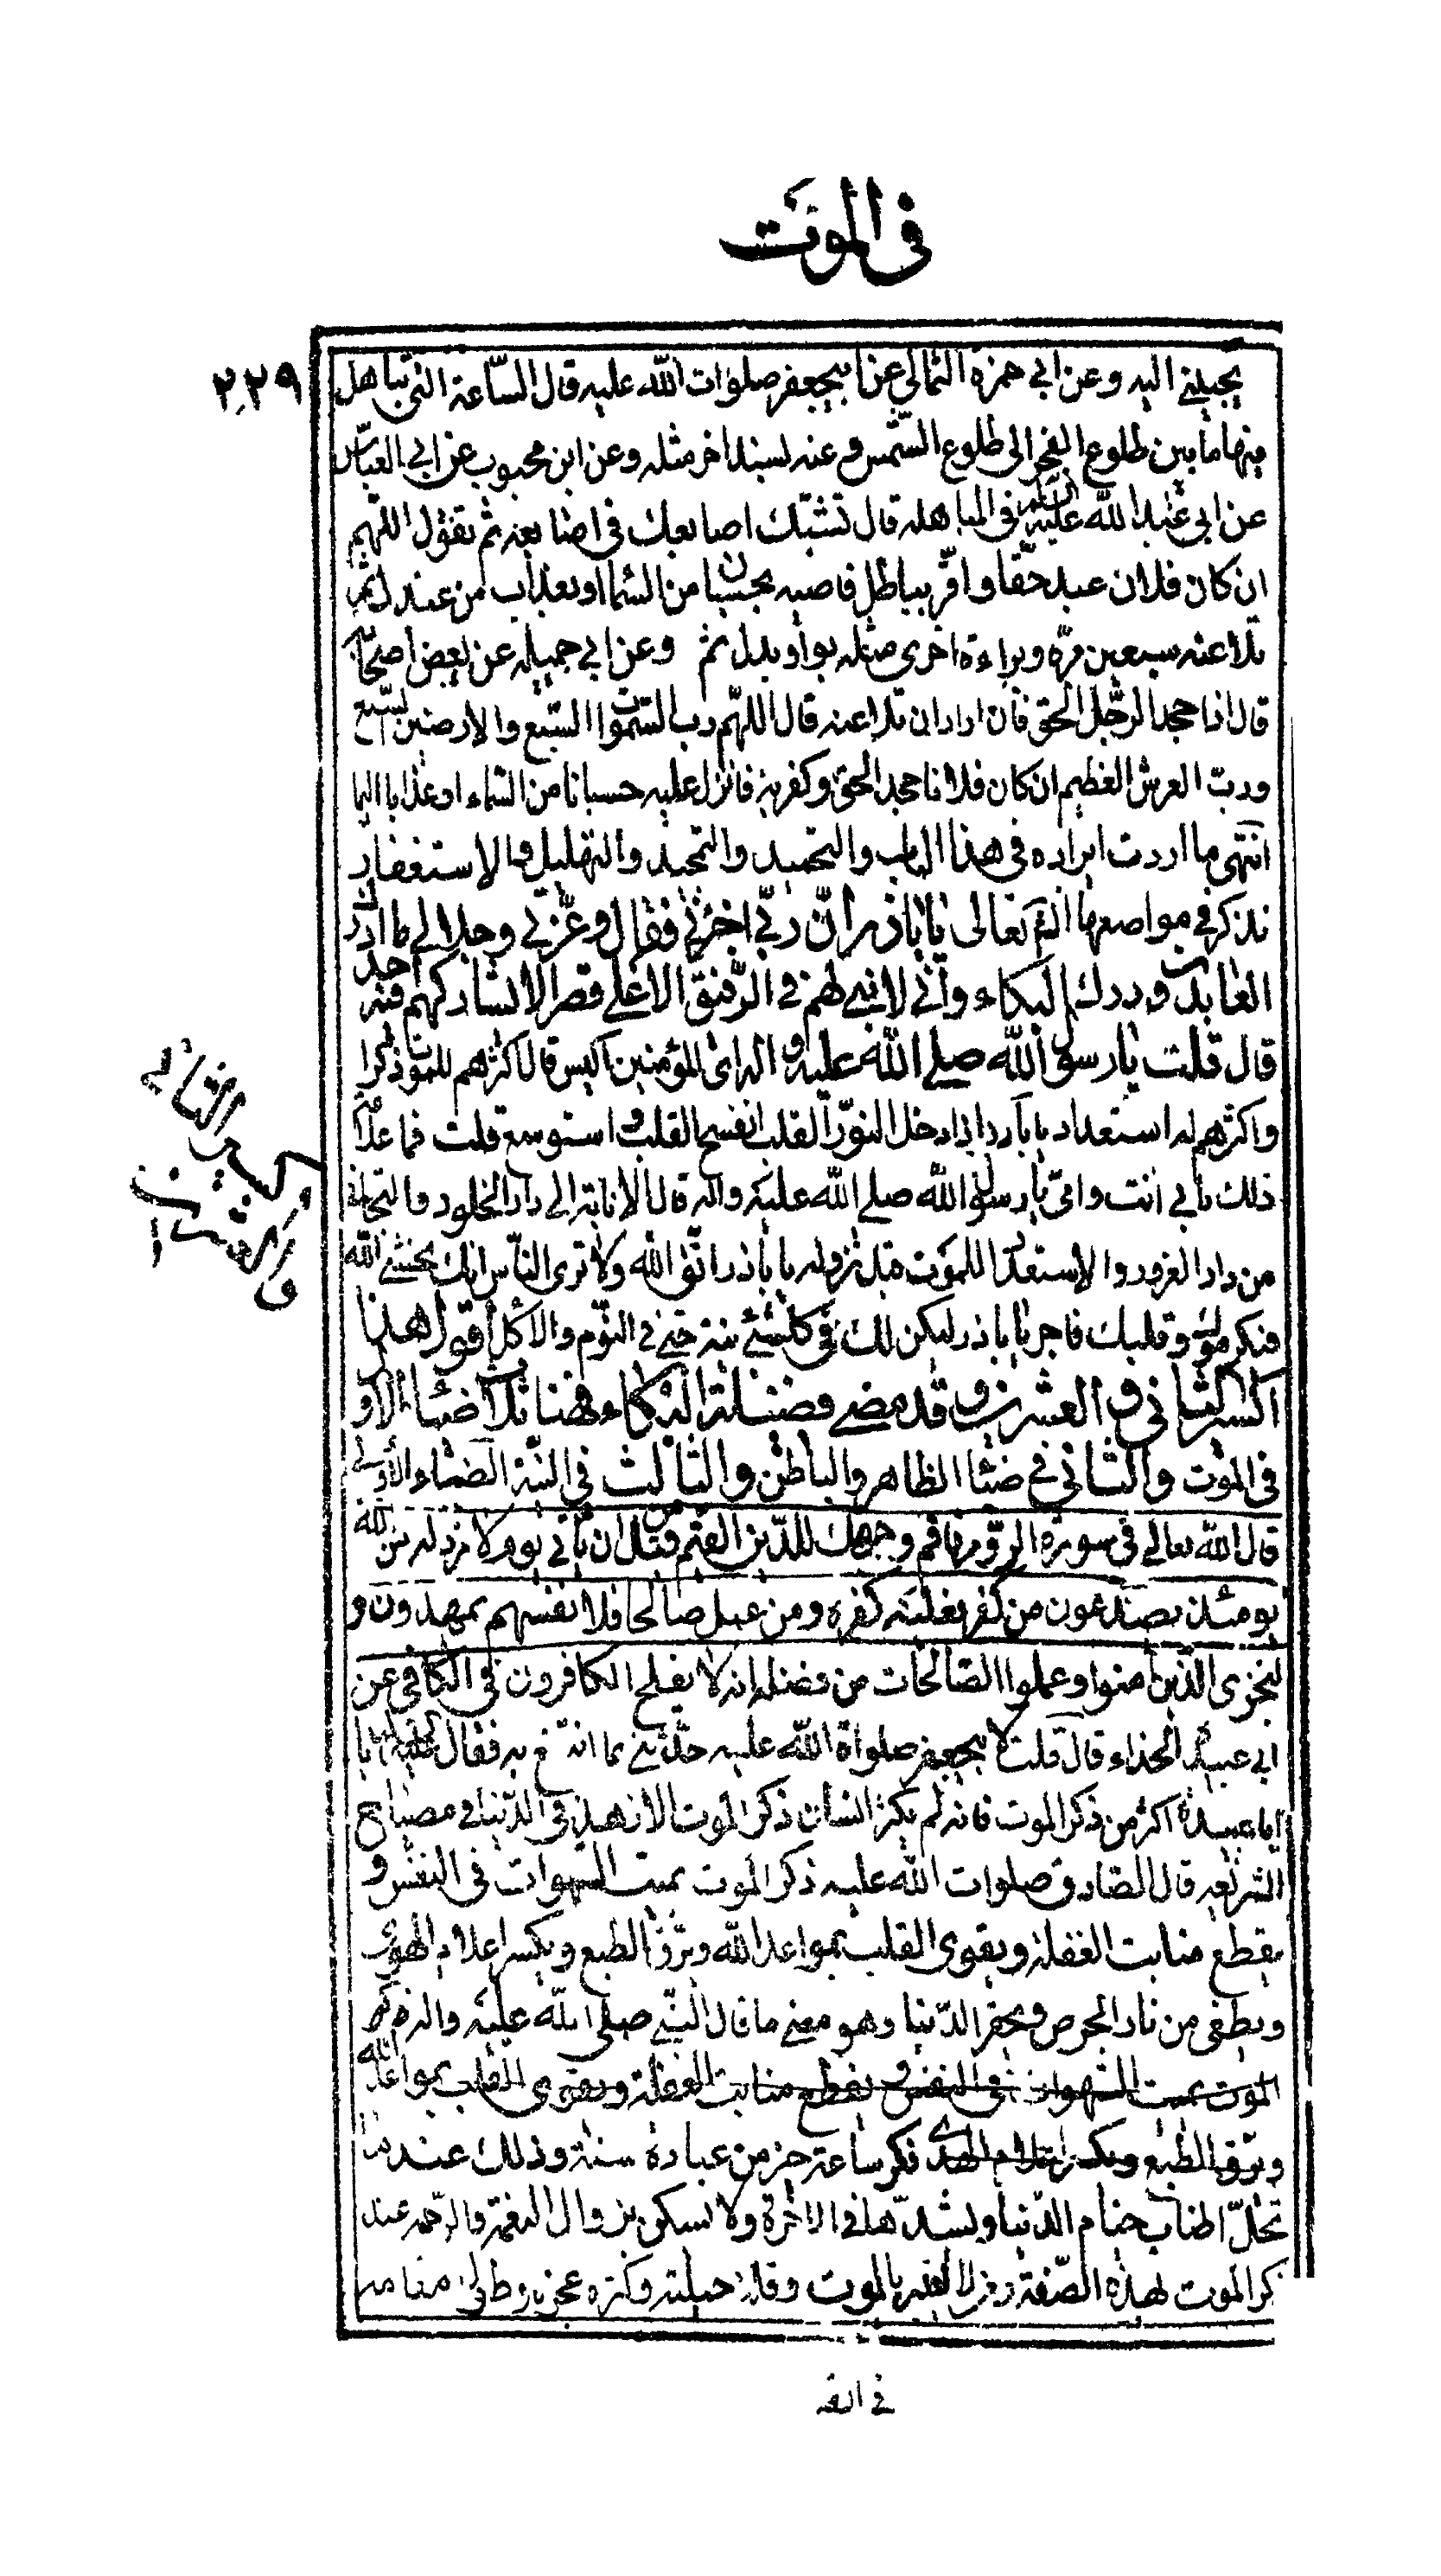 فى الموت
٢٢٩
يجيبني اليه وعن ابي حمزة الثمالي عن ابيجعفر صلوات الله عليه قال الساعة التى تباهل
فيها ما بين طلوع الفجر الى طلوع الشمس وعنه بسند اخر مثله وعن ابن محبوب عن ابي العباس
عن ابي عبد الله عليه السلم فى المباهله قال تشبّك اصابعك فى اصابعه ثم تقول اللهم
ان كان فلان جحد حقّا واقرّ بباطل فاصبه بحسبان من السماء او بعذاب من عندك ثم
تلاعنه سبعين مرّه وبراءة اخرى مثله بواو بدل ثم وعن ابي جميله عن بعض اصحابه
قال اذا جحد الرجل الحق فان اراد ان تلاعنه قال اللهم رب السموات السبع والارضين السبع
وربّ العرش العظيم ان كان فلانا جحد الحق وكفر به فانزل عليه حسبانا من السماء او عذابا اليما
انتهى ما اردت ايراده فى هذا الباب والتحميد والتمجيد والتهليل والاستغفار
نذكر في مواضعها انش تعالى يا باذر انّ ربّي اخبرني فقال وعزتي وجلالي ما ادرك
العابدون درك البكاء وانّي لابني لهم في الرّفيق الاعلى قصرا لا يشاركهم فيه احد
قال قلت يا رسول الله صلى الله عليه واله اىّ المؤمنين اكيس قال اكثرهم للموت ذكرا
واكثرهم له استعداد يا باذر اذا دخل النور القلب انفسح القلب واستوسع قلت فما علامة
ذلك بابي انت وامّي يا رسول الله صلى الله عليه واله قال الانابة الى دار الخلود والتجافى
من دار الغرور والاستعداد للموت قبل نزوله يا باذر اتق الله ولا ترى الناس انك تخشى الله
فيكرموك وقلبك فاجر يا باذر ليكن لك في كلشئ نية حتى في النوم والاكل اقول هذا
اكسير الثانى والعشرين وقد مضى فضيلة البكاء فهنا ثلاث ضياء الاول
فى الموت والثاني في ضياء الظاهر والباطن والثالث فى النية الضياء الاول
قال الله تعالى فى سورة الروم فاقم وجهك للدّين القيّم من قبل ان يأتي يوم لا مردّ له من الله
يومئذ يصدّعون من كفر فعليه كفره ومن عمل صالحا فلانفسهم يمهدون و
ليجزى الذين امنوا وعملوا الصالحات من فضله انه لا يفلح الكافرون فى الكافى عن
ابي عبيدة الحذاء قال قلت لابيجعفر صلواة الله عليه حدّثني بما انتفع به فقال عليه السلم يا
ابا عبيدة اكثر من ذكر الموت فانه لم يكثر انسان ذكر الموت الا زهد فى الدّنيا في مصباح
الشريعه قال الصادق صلوات الله عليه ذكر الموت يميت الشهوات فى النفس و
يقطع منابت الغفلة ويقوى القلب بمواعد الله ويرّق الطبع ويكسر اعلام الهوى
ويطفى من نار الحرص ويحقر الدّنيا وهو معنى ما قال النّبي صلى الله عليه واله ذكر
الموت يميت الشهوات فى النفس ويقطع منابت الغفلة ويقوى القلب بمواعد الله
ويرق الطبع ويكسر اعلام الهدى فكر ساعة خير من عبادة سنة وذلك عند ما
تحلّ اطناب خيام الدّنيا ويشدّها في الاخرة ولا يسكن بزوال النعمة والرحمه عند
كر الموت بهذه الصّفة ومن لا يعتبر بالموت وقلة حيلته وكثرة عجزه وطول مقامه
اكسير الثاني
والعشرين
فى القبر